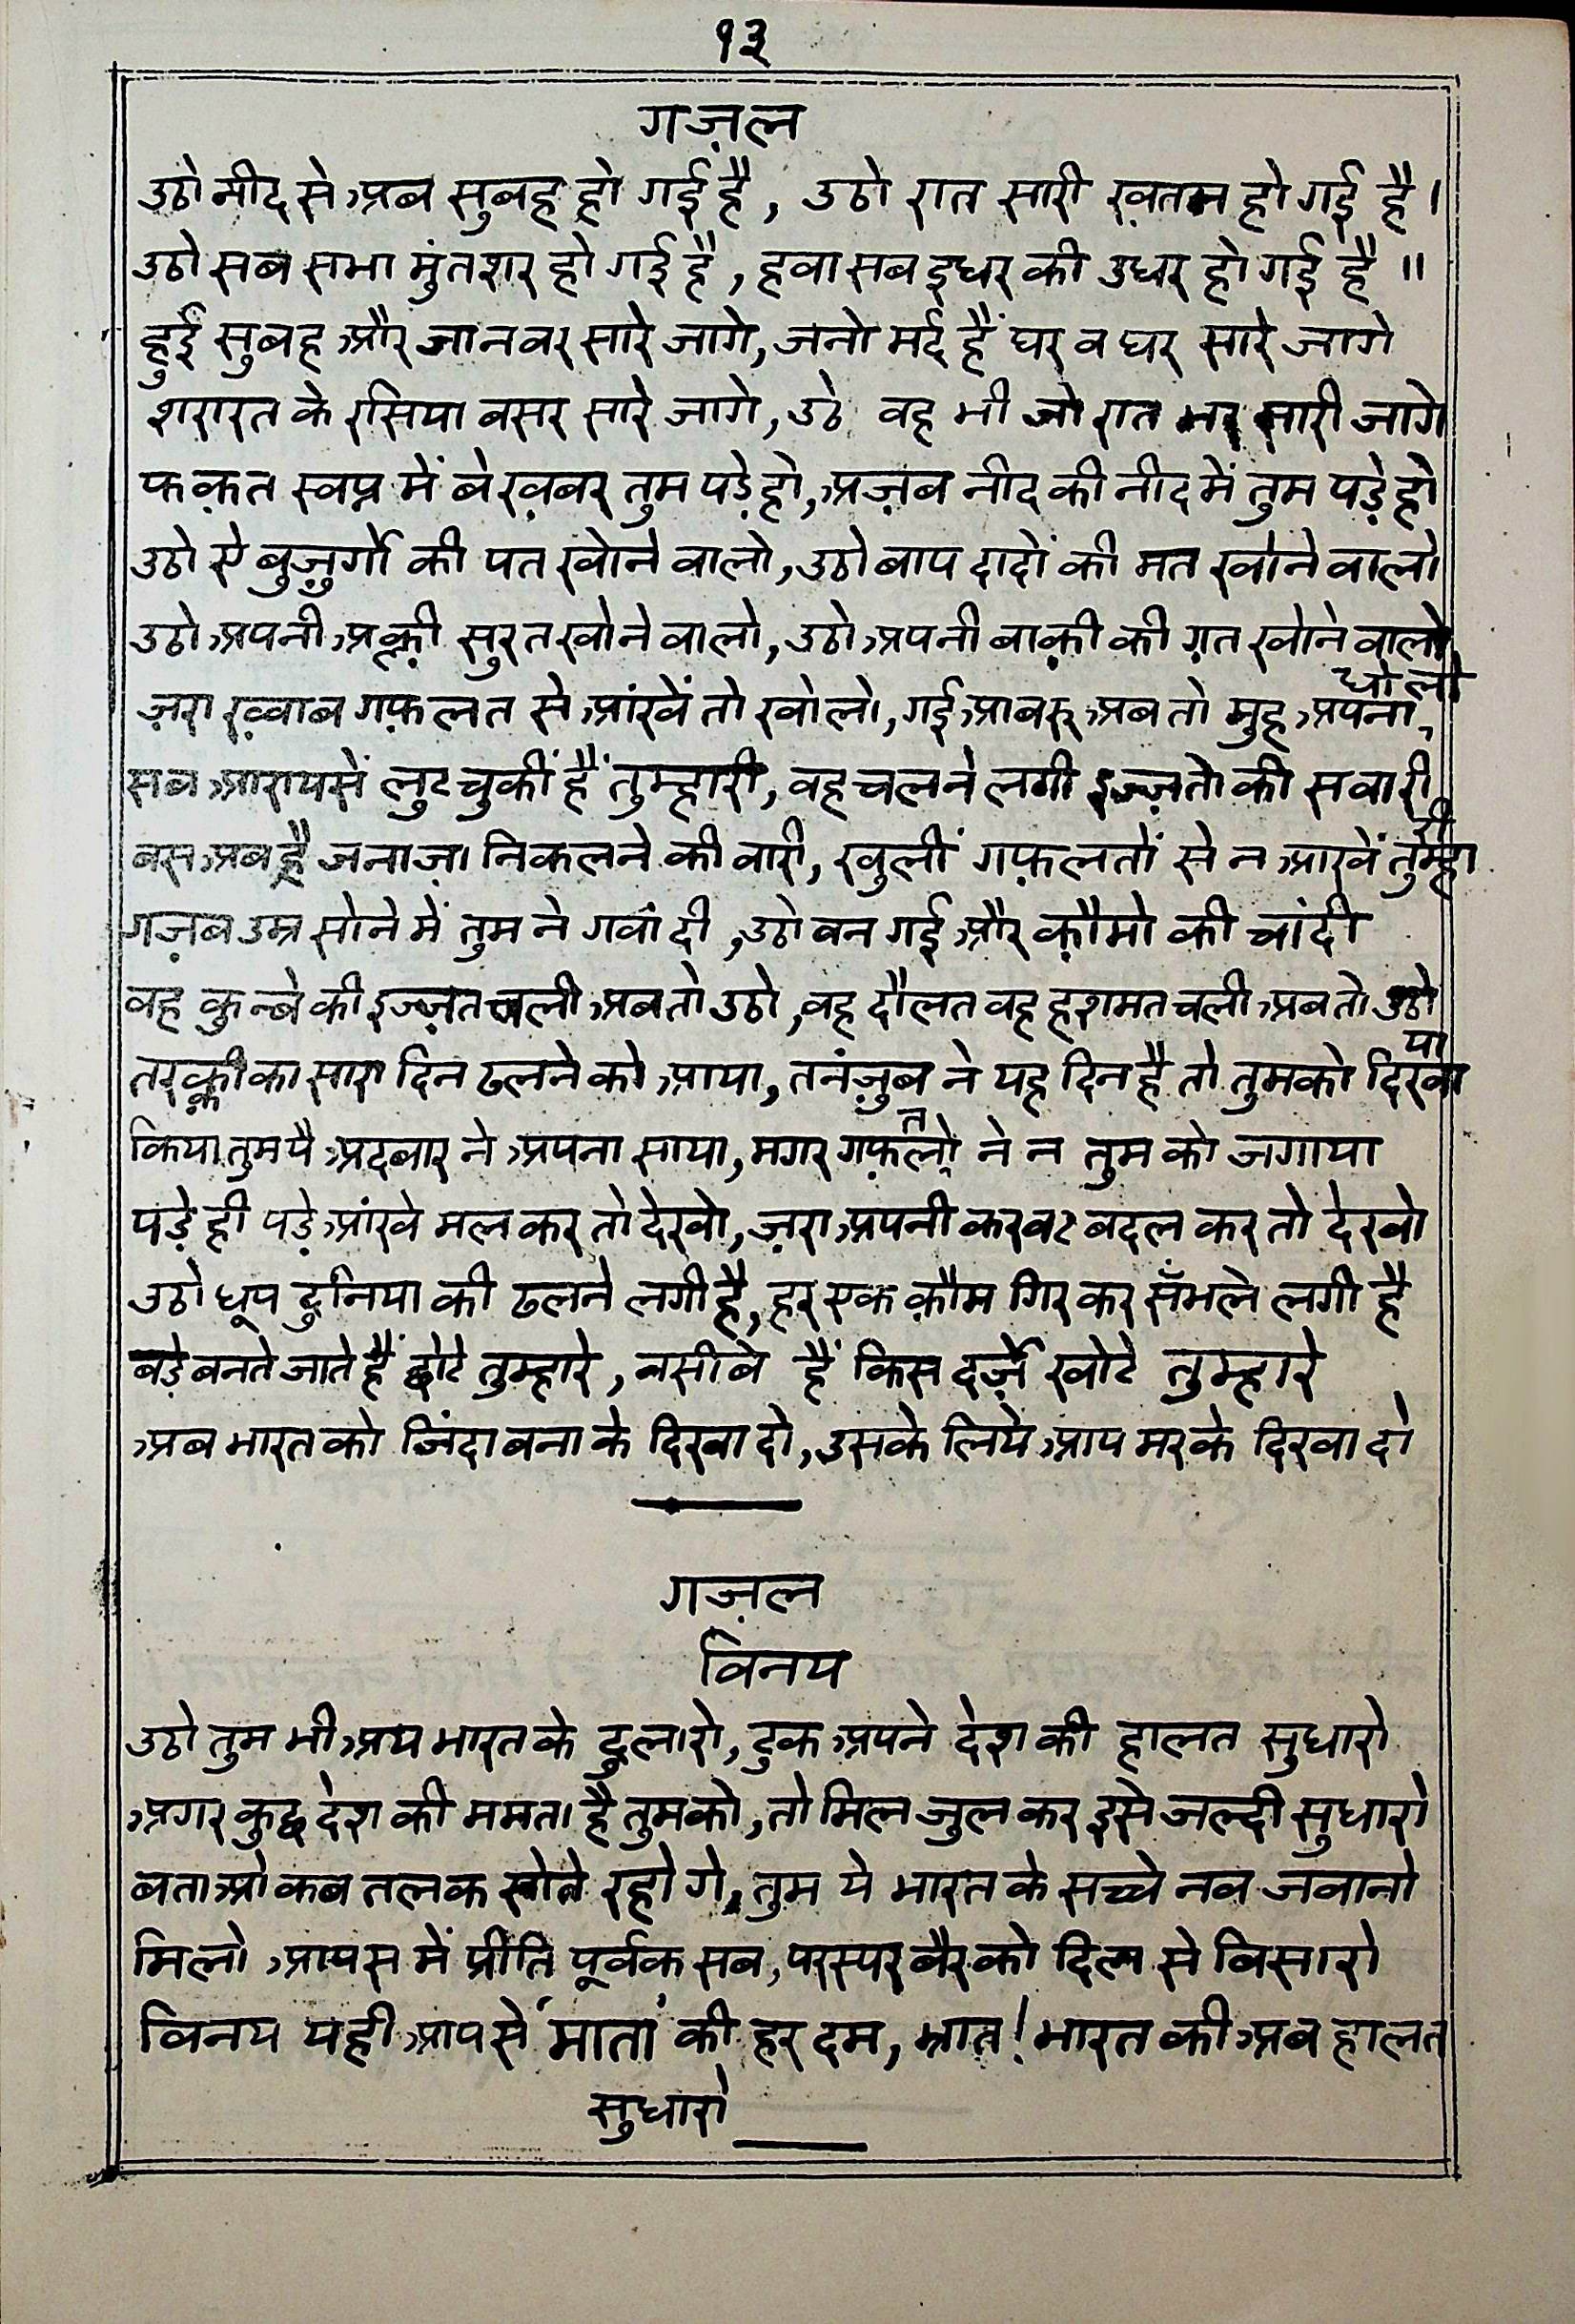 १३
गज़ल
उठो नीद से अब सुबह हो गई है, उठो रात सारी ख़तम हो गई है।
उठो सब सभा मुंतशर हो गई है, हवा सब इधर की उधर हो गई है॥
हुई सुबह और जानवर सारे जागे, जनो मर्द हैं घर व घर सारे जागे
शरारत के रसिया बसर सारे जागे, उठे वह भी जो रात भर सारी जागे
फक़त स्वप्न में बेख़बर तुम पड़े हो, अज़ब नीद की नीद में तुम पड़े हो
उठो ऐ बुज़ुर्गो की पत खोने वालो, उठो बाप दादों की मत खोने वालो
उठो अपनी अक़्ली सुरत खोने वालो, उठो अपनी बाक़ी की ग़त खोने वालो
ज़रा ख़्वाब गफ़लत से आंखें तो खोलो, गई आबरू अब तो मुह अपना धोलो
सब आरायसें लुट चुकीं हैं तुम्हारी, वह चलने लगी इज्ज़तो की सवारी
बस अब है जनाज़ा निकलने की वारी, खुलीं गफ़लतों से न आखें तुम्हारी
गज़ब उम्र सोने में तुम ने गवां दी, उठो वन गई और क़ौमो की चांदी
वह कुन्बे की इज्ज़त चली अब तो उठो, वह दौलत वह हशमत चली अब तो उठो
तरक़्क़ी का सारा दिन ढलने को आया, तनंज़ुब ने यह दिन है तो तुमको दिखाया
किया तुम पै अदबार ने अपना साया, मगर गफ़लतो ने न तुम को जगाया
पड़े ही पड़े आंखे मल कर तो देखो, ज़रा अपनी करवट बदल कर तो देखो
उठो धूप दुनिया की ढलने लगी है, हर एक क़ौम गिर कर सँभले लगी है
बड़े बनते जाते हैं छोटे तुम्हारे, नसीबे हैं किस दर्ज़े खोटे तुम्हारे
अब भारत को जिंदा बना के दिखा दो, उसके लिये आप मरके दिखा दो
गज़ल
विनय
उठो तुम भी अय भारत के दुलारो, टुक अपने देश की हालत सुधारो
अगर कुछ देश की ममता है तुमको, तो मिल जुल कर इसे जल्दी सुधारो
बताओ कब तलक सोते रहो गे, तुम ये भारत के सच्चे नव जवानो
मिलो आपस में प्रीति पूर्वक सब, परस्पर बैर को दिल से विसारो
विनय यही आप से माता की हर दम, भ्रात! भारत की अब हालत
सुधारो